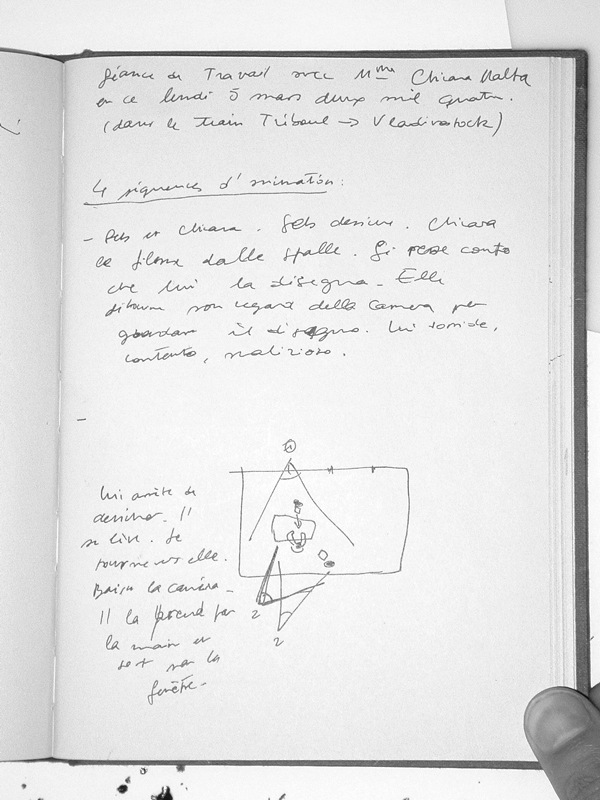 Séance de Travail avec Mme Chiara Malta
en ce lundi 5 mars deux mil quatre.
(dans le train Triboul → Vladivostock)
4 séquences d'animation:
- Seb et Chiara. Seb dessine. Chiara
le filme dalle spalle. Si rende conto
che lui la disegna. Elle
détourne son regard della camera per
guardare il disegno. lui sorride,
contento, malizioso.
-
1
lui arrête de
dessiner. Il
se lève. Se
tourne vers elle.
Baisse la caméra -
Il la prend par
la main et
sort par la
fenêtre -
2
2